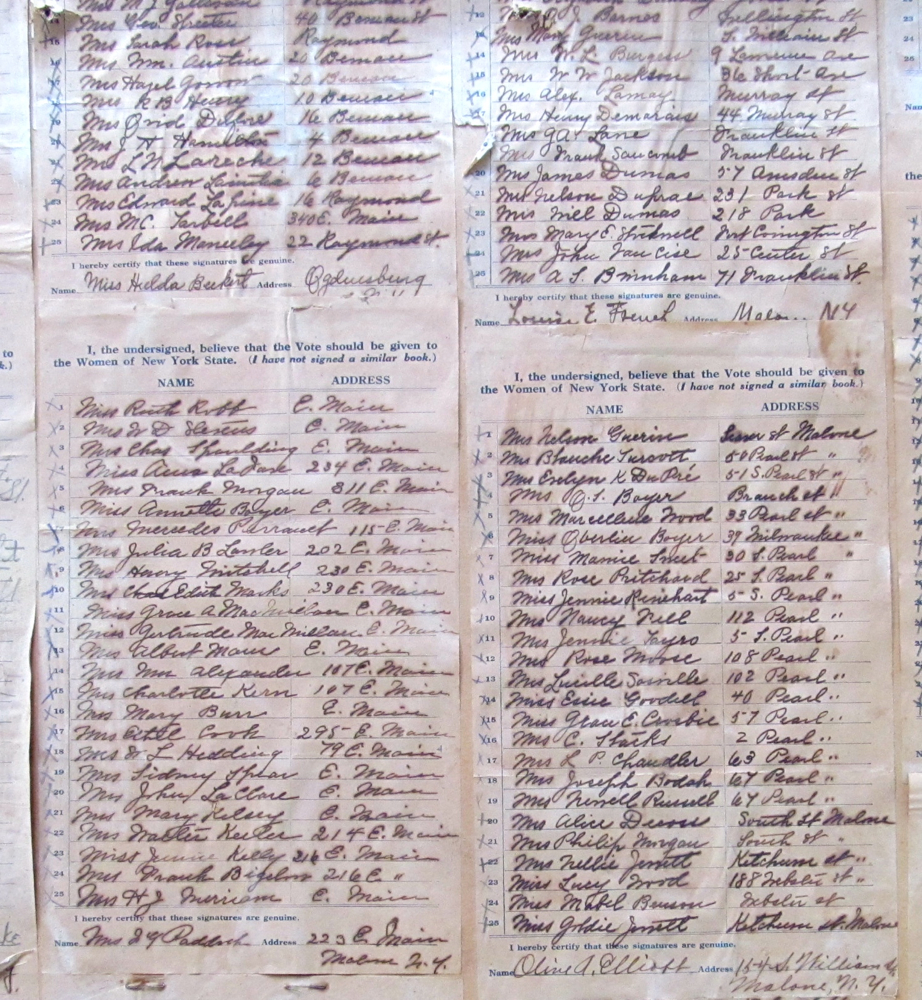 Mrs Geo Streeter 40 Beman St
18 Mrs Sarah Rose Raymond
Mrs Wm. Austin 20 Beman
Mrs Hazel 20 Beman
Mrs R B Henry 10 Beman
Mrs 16 Beman
Mrs J H Hamilton 4 Beman
Mrs L N Lareche 12 Beman
Mrs Andrew 6 Beman
23 Mrs Edward 16 Raymond
24 Mrs M.C. Tarbell 340 E. Main
25 Mrs Ida Maneeley 22 Raymond St.
I hereby certify that these signatures are genuine.
Name Miss Hilda Beckert Address Ogdensburg
N.Y.
I, the undersigned, believe that the Vote should be given to
the Women of New York State. (I have not signed a similar book.)
NAME ADDRESS
Miss Ruth Robb E. Main
Mrs W D Stevens E. Main
Mrs Chas Spaulding E. Main
Miss Anna 234 E. Main
Mrs Frank Morgan 311 E. Main
Miss Annette Boyer E. Main
Mrs Mercedes Perrault 115 E. Main
Mrs Julia B Lawler 202 E. Main
9 Mrs Henry Mitchell 230 E. Main
10 Edith Marks 230 E. Main
11 Miss Grace A MacMillan E. Main
12 Miss Gertrude MacMillan E. Main
13 Mrs Albert E. Main
14 Mrs Wm. Alexander 107 E. Main
15 Mrs Charlotte Kern 107 E. Main
16 Mrs Mary Burr E. Main
17 Mrs Ethel Cook 295 E. Main
18 Mrs W L Hedding 79 E. Main
19 Mrs Sidney Spear E. Main
20 Mrs John LaClare E. Main
21 Mrs Mary Kelsey E. Main
22 Mrs Walter Keeler 214 E. Main
23 Miss Jennie Kelly 216 E. Main
24 Mrs Frank Bigelow 216 E "
25 Mrs H J Merriam E. Main
I hereby certify that these signatures are genuine.
Name Mrs Paddock Address 223 E. Main
Malone N.Y.
12 J. Barnes Wellington St
Mrs Mary Guerin S. William St
14 Mrs W. L. Burgess 9 Lawrence Ave
15 Mrs W W Jackson 36 Short Ave
16 Mrs Alex. Lamay Murray St
17 Mrs Henry Demarais 44 Murray St
Mrs G.A. Lane Franklin St
Mrs Frank Franklin St
20 Mrs James Dumas 57 Amsden St
21 Mrs Nelson Duprae 231 Park St
22 Mrs Will Dumas 218 Park
23 Mrs Mary E. Fort Covington St
24 Mrs John Van Cise 25 Center St
25 Mrs A S. Brinham 71 Franklin St.
I hereby certify that these signatures are genuine.
Name Louise E. French Address Malone NY
I, the undersigned, believe that the Vote should be given to
the Women of New York State. (I have not signed a similar book.)
NAME ADDRESS
1 Mrs Nelson Guerin St Malone
2 Mrs Blanche Turcott 50 Pearl St "
3 Mrs Evelyn K DuPré 51 S. Pearl St "
4 Mrs O.S. Boyer Branch St "
5 Mrs Marcelline Wood 33 Pearl St "
6 Miss Oberline Boyer 39 Milwaukee "
7 Miss Mamie Smet 30 S. Pearl "
8 Mrs Rose Pritchard 25 S. Pearl "
9 Miss Jennie Rinehart 5 S. Pearl "
10 Mrs Nancy Nell 112 Pearl "
11 Mrs Jennie Sayro 5 S. Pearl "
12 Mrs Rose Moose 108 Pearl "
13 Mrs Lucille 102 Pearl "
14 Miss Goodell 40 Pearl "
15 Miss Grace E. Crosbie 57 Pearl "
16 Mrs C. Starks 2 Pearl "
17 Mrs L P. Chandler 63 Pearl "
18 Mrs Joseph Bodah 67 Pearl "
19 Mrs Newell Russell 67 Pearl "
20 Mrs Alice South St Malone
21 Mrs Philip Morgan South St "
22 Mrs Nellie Jewett Ketchum St "
23 Miss Lucy Wood 188 Webster St "
24 Miss Mabel Benson Webster St
25 Miss Goldie Jewett Ketchum St. Malone
I hereby certify that these signatures are genuine.
Name Olive A. Elliott Address 154 S. William St
Malone, N.Y.